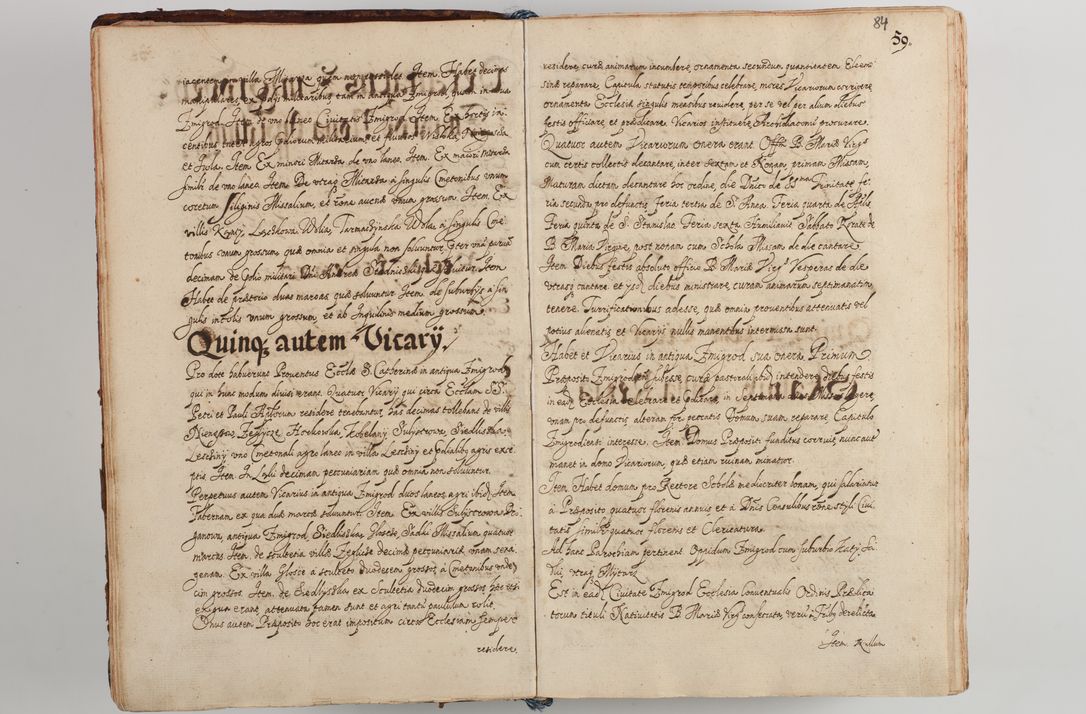 iacentem in villa Mytarza quem non possidet. Item. Habet decimas
manipulares ex agris militaribus tam in antiqua Zmigrod, quam in sua
Zmigrod. Item de uno laneo Civitatis Zmigrod. Item. Ex hortis in
centibus inter agros
et Iusla. Item Ex minori Mitarza, de uno laneo. Item. Ex maiori Mitarza
simili de uno laneo. Item. De utraq Mitarza a singulis Cmetonibus unum
coretum siliginis Missalium, et tona avenæ unum grossum. Item. Ex
villis Lyschowa Wola, Wola, a singulis Cme
tonibus unum grossum, quæ omnia et singula non solvuntur præter una parva
decimam de solio militari
Habet de prætorio duas marcas, quæ solvuntur. Item. de suburbijs a sin
gulis incolis unum grossum, et ab Inquilinis medium grossum.
Quinq autem Vicarÿ.
Pro dote habuerunt Proventus Ecclæ S. Catherinæ in antiqua Zmigrod
qui in hunc modum divisi erant. Quatuor Vicarij qui circa Ecclam SS.
Petri et Pauli Aplorum residere tenebantur, has decimas tollebant de villis
Sulystrowa, Siedliska
Leschiny uno Cmetonali agro laneo in villa Leschiny et prædialibus agris exce
ptis. Item. In decimam pecuniariam quæ omnia non solvuntur.
Perpetuus autem Vicarius in antiqua Zmigrod duos laneos agri ibid. Item
Tabernam ex qua duæ marcæ solvuntur. Item. Ex villis Sulystrowa
antiqua Zmigrod, Siedliska, Glosce, Sadki Missalium quatuor
marcas. Item. de scultetia villæ decimæ pecuniariæ unam sexa
genam. Ex villa Glosce a sculteto duodecem grossos, a Cmetonibus unde
cim grossos. Item. de Siedlyska ex Scultetia duodecim grossos, hæc etsi
exigua erant, attenuata tamen sunt et agri tantum paululum colit.
Onus autem Præpositi hoc erat impositum circa Ecclesiam semper
residere
84
59.
residere, curæ animarum incumbere, ornamenta secundum quantitatem Elemo
sinæ reparare, Capitula statutis temporibus celebrare, mores Vicariorum corrigere
ornamenta Ecclesiæ singulis mensibus revidere, per se vel per alium diebus
festis officiare et prædicare. Vicarios instituere, Archidiaconum procurare.
Quatuor autem Vicariorum onera erant. Offm B. Mariæ Virgs
cum certis collectis decantare, inter sextam et Nonam, primam Missam,
Maturam dictam decantare hoc ordine, die Dnico de SSma Trinitate, fe
ria secunda pro defunctis, feria tertia de S. Anna. Feria quarta de Aplis.
Feria quinta de S. Stanislao, Feria sexta Sabbato Rorate de
B. Maria Virgine, post nonam cum Schola Missam de die cantare
Item Diebus festis absoluto officio B. Mariæ Virgs Vesperas de die
utrasq cantare, et ysd diebus ministrare, curam animarum septimanatim
tenere. Turrificationibus adesse, quæ omnia proventibus attenuatis vel
potius alienatis et Vicarijs nullis manentibus intermissa sunt.
Habet et Vicarius in antiqua Zmigrod sua onera. Primum
Præposito Zmigroden subesse, curæ pastorali ibid intendere, diebus festis
in ead Ecclesia celebrare et prædicare, in Septimana duas Missas legere,
unam pro defunctis, alteram pro peccatis, Domum suam reparare, Capitulo
Zmigrodiensi interesse. Item. Domus Præpositi funditus corruit, nunc aut
manet in domo Vicariorum, quæ etiam ruinam minatur.
Item. Habet domum pro Rectore Scholæ mediocriter bonam, qui salariatur
a Præposito quatuor florenis annuis, et a Dnis Consulibus rône styli Civi
tatis similr quatuor florenis et Clericatura.
Ad hanc Parochiam pertinent Oppidum Zmigrod cum suburbio
utraq Mytarz.
Est in ead Civitate Zmigrod Ecclesia Conventualis Ordinis Prædica
torum tituli Nativitatis B. Mariæ Virg consecrata, verum a Fribus derelicta
Item. Nullum